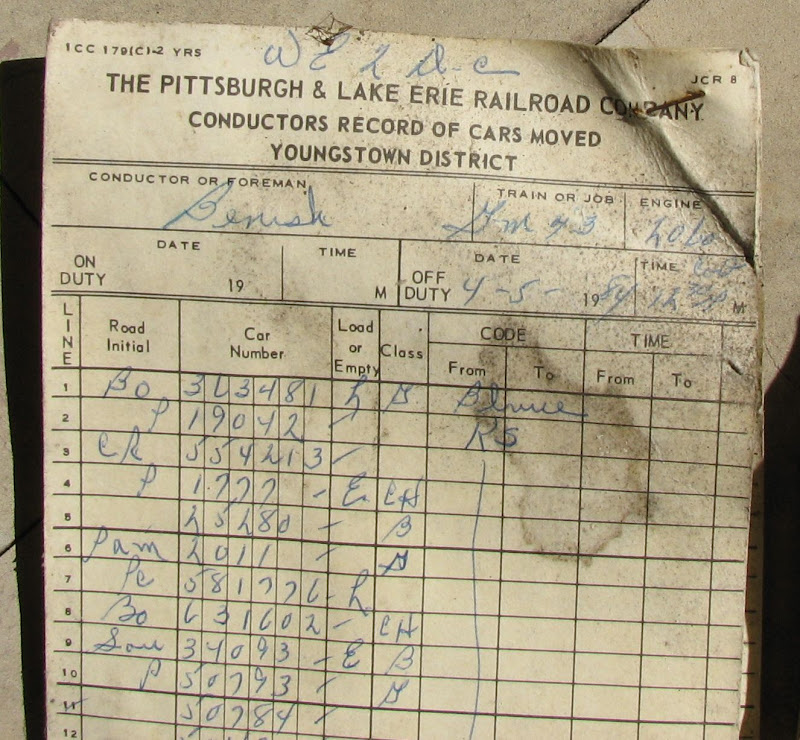 W E 2 D-C
ICC 179(C)-2 YRS
JCR 8
THE PITTSBURGH & LAKE ERIE RAILROAD COMPANY
CONDUCTORS RECORD OF CARS MOVED
YOUNGSTOWN DISTRICT
CONDUCTOR OR FOREMAN TRAIN OR JOB ENGINE
Benish 93
DATE TIME DATE TIME
ON DUTY 19 M OFF DUTY 4-5- 1984 M
LINE Road Initial Car Number Load or Empty Class CODE TIME
From To From To
1 BO 313481 L G
2 P 19042
3 CR 554213 -
4 P 1777 - E CH
5 25280 - B
6 Pam 2011 - G
7 PC 581776 - L
8 BO 631602 - CH
9 Sou 34093 - E B
10 P 50793 - G
11 50784 -
12